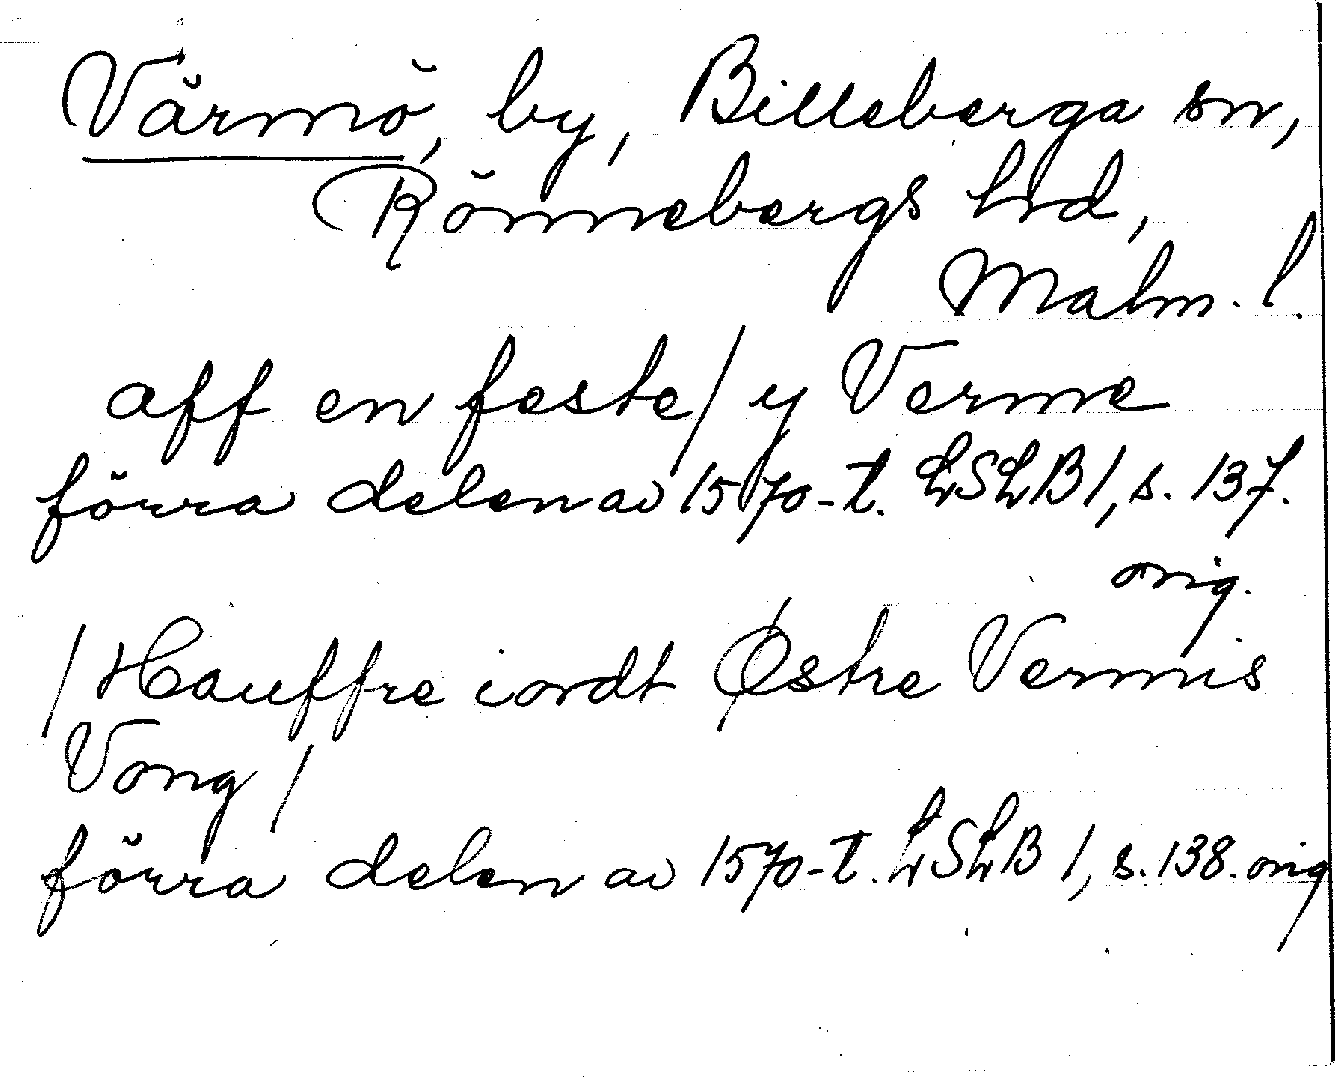 Värmö, by, Billeberga sn,
Rönnebergs hrd,
Malm. l.
aff en feste/ y Verme
förra delen av 1570-t. LSLB 1, s. 137.
orig.
/Hauffre iordt Østre Vermis
Vong/
förra delen av 1570-t. LSLB 1, s. 138. orig